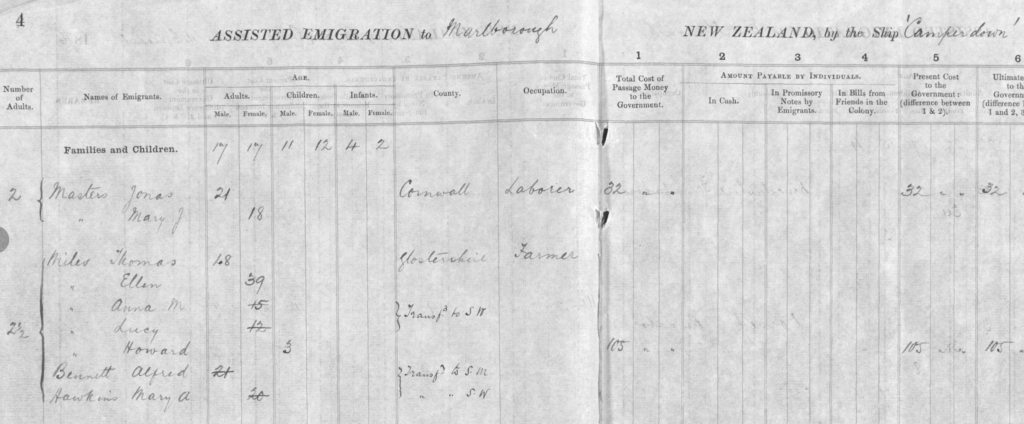 4
ASSISTED EMIGRATION to Marlborough NEW ZEALAND, by the Ship 'Camperdown'
1 2 3 4 5 6
Number of Adults. Names of Emigrants. AGE. County. Occupation. Total Cost of Passage Money to the Government. AMOUNT PAYABLE BY INDIVIDUALS. Present Cost to the Government: (difference between 1 & 2). Ultimate
Adults. Children. Infants. In Cash. In Promissory Notes by Emigrants. In Bills from Friends in the Colony.
Male. Female. Male. Female. Male. Female.
Families and Children. 17 17 11 12 4 2
2 Masters Jonas 21 Cornwall Laborer 32 " " 32 " " 32 "
" Mary J 18
Miles Thomas 48 Glostershire Farmer
" Ellen 39
" Anna M 15 Transfd to S W
2½ " Lucy 12
" Howard 3 105 " " 105 " " 105 "
Bennett Alfred 21 Transfd to S M
Hawkins Mary A 20 " " S W